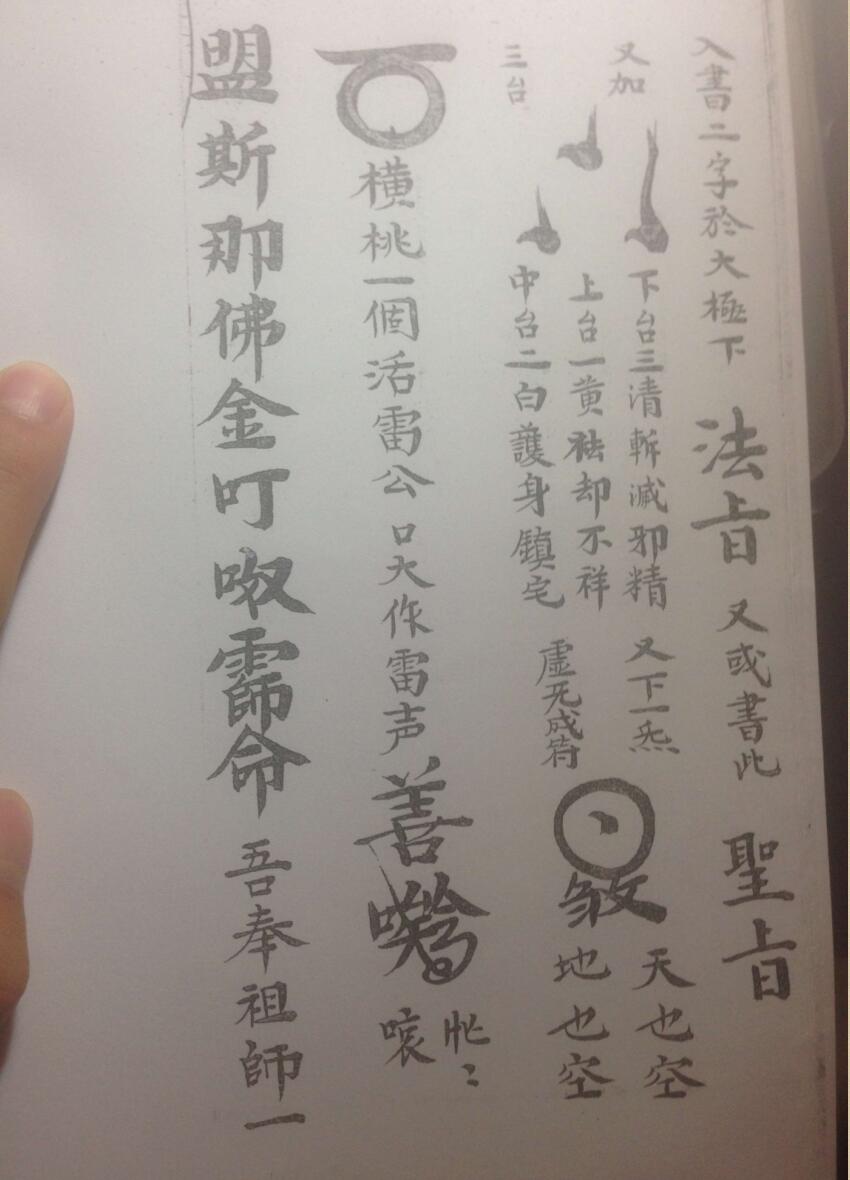 入書二字於大極下 法旨 又或書此 聖旨
又加 下台三清斬滅邪精 又下一炁 天也空
上台一黄祛却不祥
三台 中台二白護身鎮宅 虛无成符 敕 地也空
橫桃一個活雷公 口大作雷声 善
盟斯那佛金叮 命 吾奉祖師一